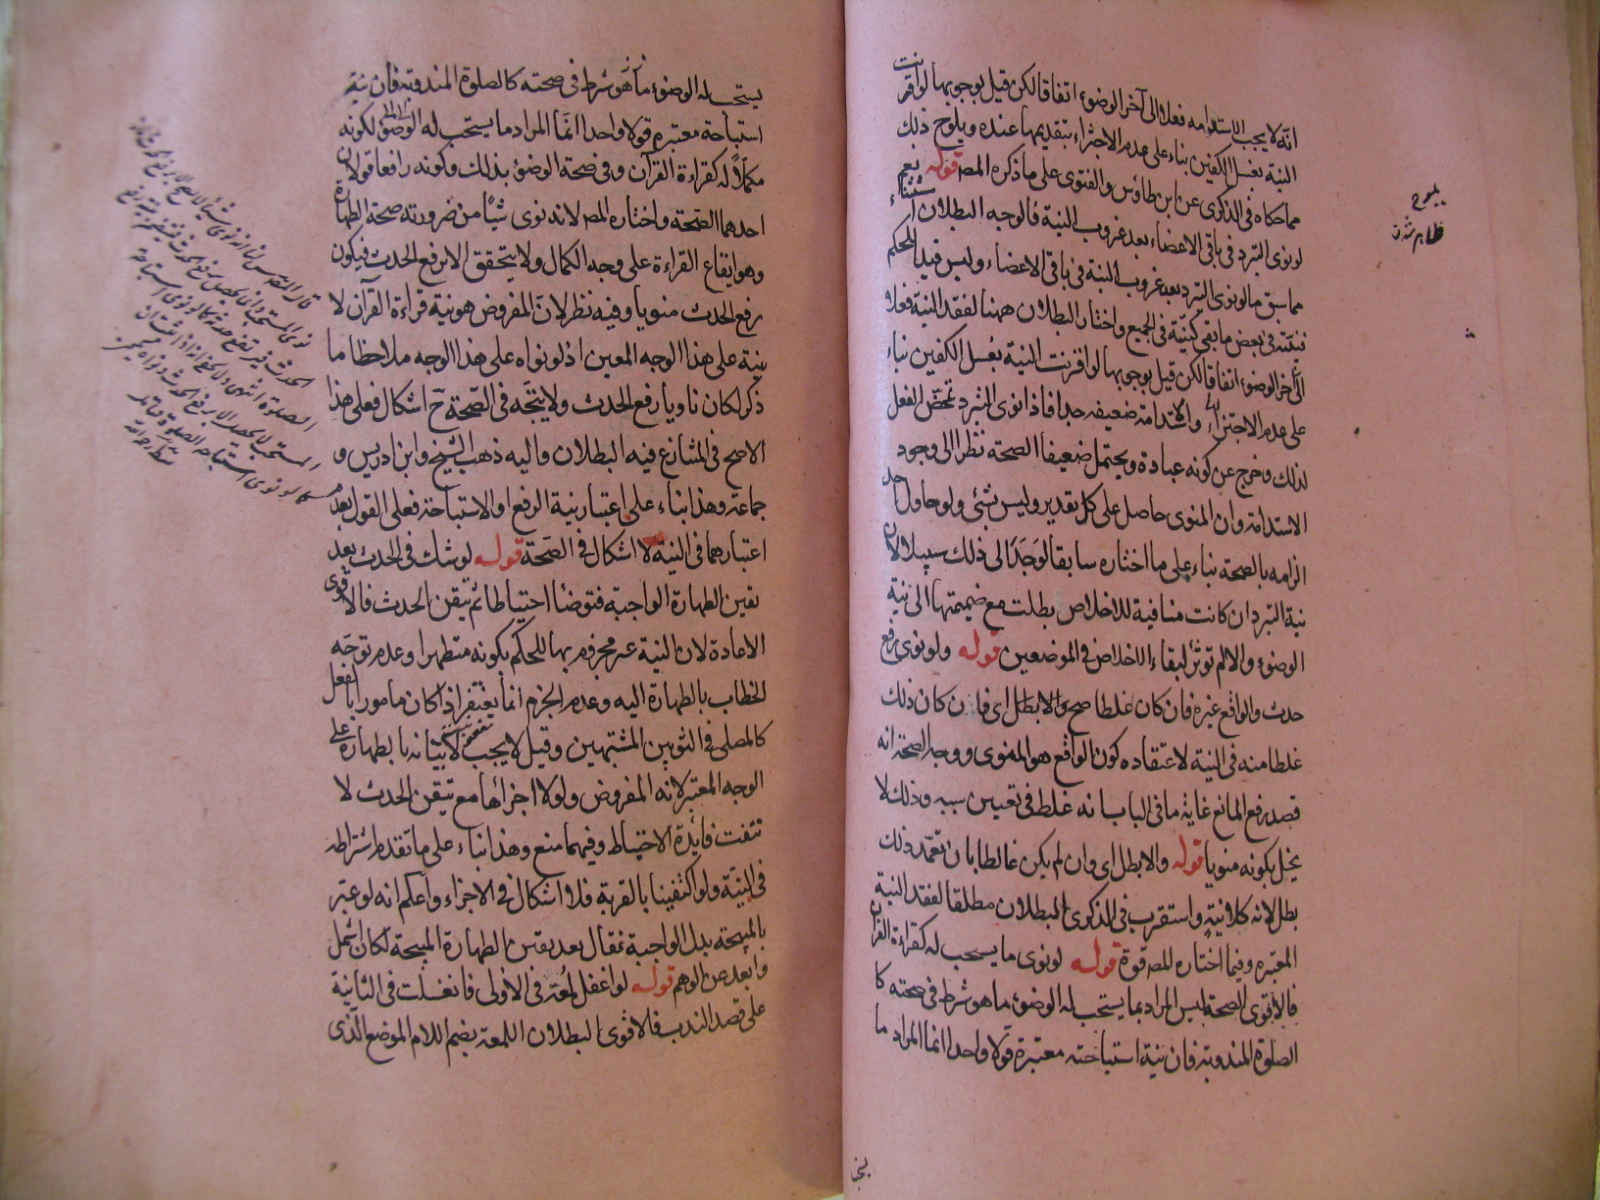 انه لا يجب الاستدامه فعلا الى آخر الوضوء اتفاقا لكن قيل بوجوبها لو اقترنت
النية بغسل الكفين بناء على عدم الاجتزاء بتقديمها عنده ويلوح ذلك
مما حكاه فى الذكرى عن ابن طاوس والفتوى على ما ذكره المصـ قوله نعم
لو نوى التبرد فى باقى الاعضاء بعد عزوب النية فالوجه البطلان
مما سبق ما لو نوى التبرد بعد عزوب النية فى باقى الاعضاء وليس قيدا للحكم
فنيته فى بعض ما بقى كنيّته فى الجميع واختار البطلان ههنا لفقد النية فعلا
الى آخر الوضوء اتفاقا لكن قيل بوجوبها لو اقترنت النية بغسل الكفين بناء
على عدم الاجتزاء والاستدامة ضعيفه جدا فاذا نوى التبرد تمحّض الفعل
لذلك وخرج عن كونه عبادة ويحتمل ضعيفا الصحة نظرا الى وجود
الاستدامة وان المنوى حاصل على كل تقدير وليس بشئ ولو حاول احد
الزامه بالصحة بناء على ما اختاره سابقا لوجد الى ذلك سبيلا لان
نية التبرد ان كانت منافية للاخلاص بطلت مع ضميمتها الى نية
الوضوء والا لم تؤثر لبقاء الاخلاص فى الموضعين قوله ولو نوى رفع
حدث والواقع غيره فان كان غلطا صح والا بطل اى فان كان ذلك
غلطا منه فى النية لاعتقاده كون الواقع هو المنوى ووجه الصحة انه
قصد رفع المانع غاية ما فى الباب انه غلط فى تعيين سببه وذلك لا
يخل بكونه منويا قوله والا بطل اى وان لم يكن غالطا بان تعمّد ذلك
بطل لانه كلا نية واستقرب فى الذكرى البطلان مطلقا لفقد النية
المعتبره وفيما اختاره المصـ قوة قوله لو نوى ما يستحب له كقراءة القران
فالاقوى الصحة ليس المراد بما يستحب له الوضوء ما هو شرط فى صحته كا
الصلوة المندوبة فان نية استباحته معتبرة قولا واحدا انما المراد ما
يلوح
ظاهر شدن
يستحب له الوضوء ما هو شرط فى صحته كالصلوة المندوبة فان نية
استباحة معتبره قولا واحدا انّما المراد ما يستحب له الوضوء لكونه
مكملًا له كقراءة القرآن وفى صحة الوضوء بذلك وكونه رافعا قولان
احدهما الصّحة واختاره المصـ لانه نوى شيئا من ضرورته صحة الطهارة
وهو ايقاع القراءة على وجه الكمال ولا يتحقق الا برفع الحدث فيكون
رفع الحدث منويا وفيه نظر لانّ المفروض هو نية قراءة القرآن لا
نية على هذا الوجه المعين اذ لو نواه على هذا الوجه ملاحظا ما
ذكر لكان ناويا رفع الحدث ولا يتّجه فى الصّحة ح اشكال فعلى هذا
الاصح فى المتنازع فيه البطلان واليه ذهب الشيخ وابن ادريس و
جماعة وهذا بناء على اعتبار نية الرفع او الاستباحة فعلى القول بعدم
اعتبارهما فى النية لا اشكال فى الصّحة قوله لو شك فى الحدث بعد
يقين الطهارة الواجبة فتوضأ احتياطا ثم تيقن الحدث فالاقوى
الاعادة لان النية غير مجزوم بها للحكم بكونه متطهرا وعدم توجّه
الخطاب بالطهارة اليه وعدم الجزم انما يغتفر اذا كان مامورا بالفعل
كالمصلى فى الثوبين المشتبهين وقيل لا يجب لاتيانه بالطهارة على
الوجه المعتبر لانه المفروض ولولا اجزائها مع تيقن الحدث لا
نتفت فائدة الاحتياط وفيهما منع وهذا بناء على ما تقدم اشتراطه
فى النيّة ولو اكتفينا بالقربة فلا اشكال فى الاجزاء واعلم انه لو عبّر
بالمبيحة بدل الواجبة فقال بعد يقين الطهارة المبيحة لكان اشمل
وابعد عن الوهم قوله لو اغفل لمعة فى الاولى فانغسلت فى الثانية
على قصد الندب فالاقوى البطلان اللمعة بضم اللام الموضع الّذى